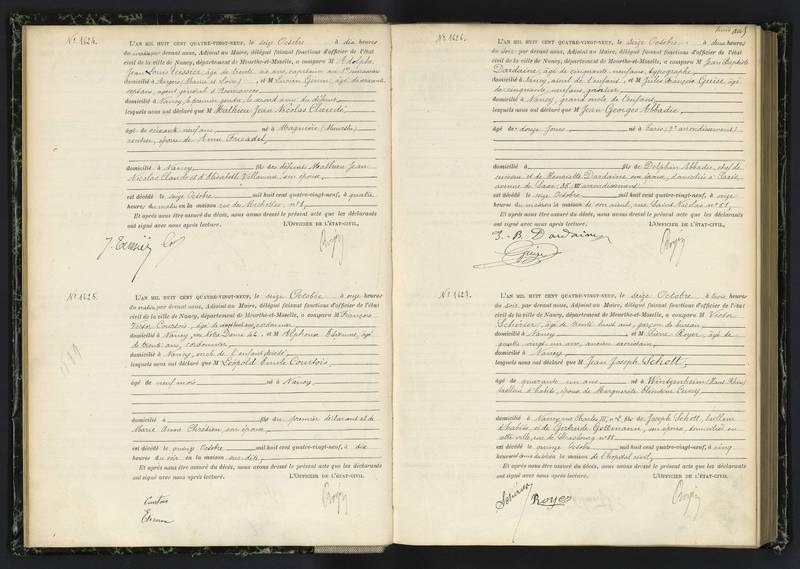 N° 1624.
L'AN MIL HUIT CENT QUATRE-VINGT-NEUF, le seize Octobre à dix heures
du matin par devant nous, Adjoint au Maire, délégué faisant fonctions d'officier de l'état
civil de la ville de Nancy, département de Meurthe-et-Moselle, a comparu M Adolphe
Jean Louis Teissier, âgé de trente six ans, capitaine au
domicilié à et M Lucien âgé de soixante
sept ans, agent général d'assurances
domiciliés à Nancy, le premier gendre, le second ami du défunt,
lesquels nous ont déclaré que M Mathieu Jean Nicolas Claude,
âgé de soixante neuf ans né à Magnières (Meurthe)
rentier, époux de Anne
domicilié à Nancy fils des défunts Mathieu Jean
Nicolas Claude et d'Elisabeth Villaume, son épouse,
est décédé le seize Octobre mil huit cent quatre-vingt-neuf, à quatre
heures du matin en la maison rue des Michottes, n° 1
Et après nous être assuré du décès, nous avons dressé le présent acte que les déclarants
ont signé avec nous après lecture. L'OFFICIER DE L'ÉTAT-CIVIL,
N° 1625.
L'AN MIL HUIT CENT QUATRE-VINGT-NEUF, le seize Octobre à onze heures
du matin, par devant nous, Adjoint au Maire, délégué faisant fonctions d'officier de l'état
civil de la ville de Nancy, département de Meurthe-et-Moselle, a comparu M François
Victor Courtois, âgé de ans, cordonnier
domicilié à Nancy, rue Notre Dame 42 et M Alphonse Etienne, âgé
de trente ans, cordonnier
domicilié à Nancy, oncle de l'enfant
lesquels nous ont déclaré que M Léopold Emile Courtois,
âgé de neuf mois né à Nancy
domicilié à fils du premier déclarant et de
Marie Anne Chrétien, son épouse
est décédé le quinze Octobre mil huit cent quatre-vingt-neuf, à dix
heures du soir en la maison sus-dite,
Et après nous être assuré du décès, nous avons dressé le présent acte que les déclarants
ont signé avec nous après lecture. L'OFFICIER DE L'ÉTAT-CIVIL
Courtois
Etienne
N° 1626.
L'AN MIL HUIT CENT QUATRE-VINGT-NEUF, le seize Octobre à deux heures
du soir par devant nous, Adjoint au Maire, délégué faisant fonctions d'officier de l'état
civil de la ville de Nancy, département de Meurthe-et-Moselle, a comparu M Jean Baptiste
Dardaine, âgé de cinquante neuf ans, typographe
domicilié à Nancy, aïeul de l'enfant et M Jules François Guise, âgé
de cinquante neuf ans,
domicilié à Nancy, grand oncle de l'enfant
lesquels nous ont déclaré que M Jean Georges Abbadie,
âgé de douze jours né à Paris arrondissement)
domicilié à fils de Delphin Abbadie, chef de
cuisine, et de Henriette Dardaine, son épouse, domiciliés à Paris,
avenue de arrondissement)
est décédé le seize Octobre mil huit cent quatre-vingt-neuf, à onze
heures du matin en la maison de son aïeul, rue Saint Nicolas n° 51,
Et après nous être assuré du décès, nous avons dressé le présent acte que les déclarants
ont signé avec nous après lecture. L'OFFICIER DE L'ÉTAT-CIVIL,
J. B. Dardaine
Guise
N° 1627.
L'AN MIL HUIT CENT QUATRE-VINGT-NEUF, le seize Octobre à trois heures
du soir par devant nous, Adjoint au Maire, délégué faisant fonctions d'officier de l'état
civil de la ville de Nancy, département de Meurthe-et-Moselle, a comparu M Victor
âgé de trente huit ans, garçon de bureau
domicilié à Nancy et M Pierre Royer, âgé de
ans, ancien sacristain
domiciliés à Nancy
lesquels nous ont déclaré que M Jean Joseph Schott,
âgé de quarante un ans né à Wintzenheim (Haut Rhin)
tailleur d'habits, époux de Marguerite Blondine Cuny
domicilié à Nancy, rue Charles III, n° fils de Joseph Schott, tailleur
d'habits, et de Gertrude son épouse, domiciliés en
cette ville, rue de Strasbourg n°
est décédé le quinze Octobre mil huit cent quatre-vingt-neuf, à cinq
heures en la maison de l'hôpital civil,
Et après nous être assuré du décès, nous avons dressé le présent acte que les déclarants
ont signé avec nous après lecture. L'OFFICIER DE L'ÉTAT-CIVIL,
Royer